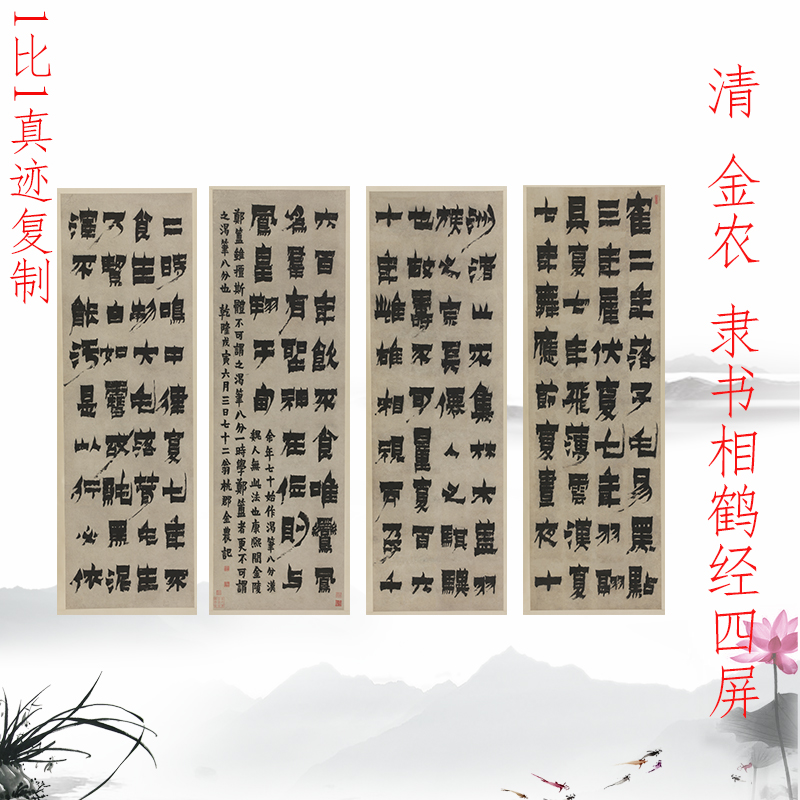 清 金农 隶书相鹤经四屏
隺二年落子毛易黑點
三年產伏夏七年羽翮
具夏七年飛薄雲漢夏
七年舞應節夏晝夜十
洲渚止不集林木蓋羽
族之宗長僊人之騏驥
也故壽不可量夏百六
十年雌雄相視而孕千
六百年飲不食唯鸞鳳
爲羣有聖神在位則與
鳳皇翔于甸
余年七十始作渴筆八分漢
魏人無此法也康熙間金陵
鄭簠雖擅斯體不可謂之渴筆八分一時學鄭簠者更不可謂
之渴筆八分也 乾隆戊寅六月三日七十二翁杭郡金農記
二時鳴中律夏七年不
食生物大毛落茸毛生
乃白如故黑泥
澤不能汚是以行必依
1比1真迹复制